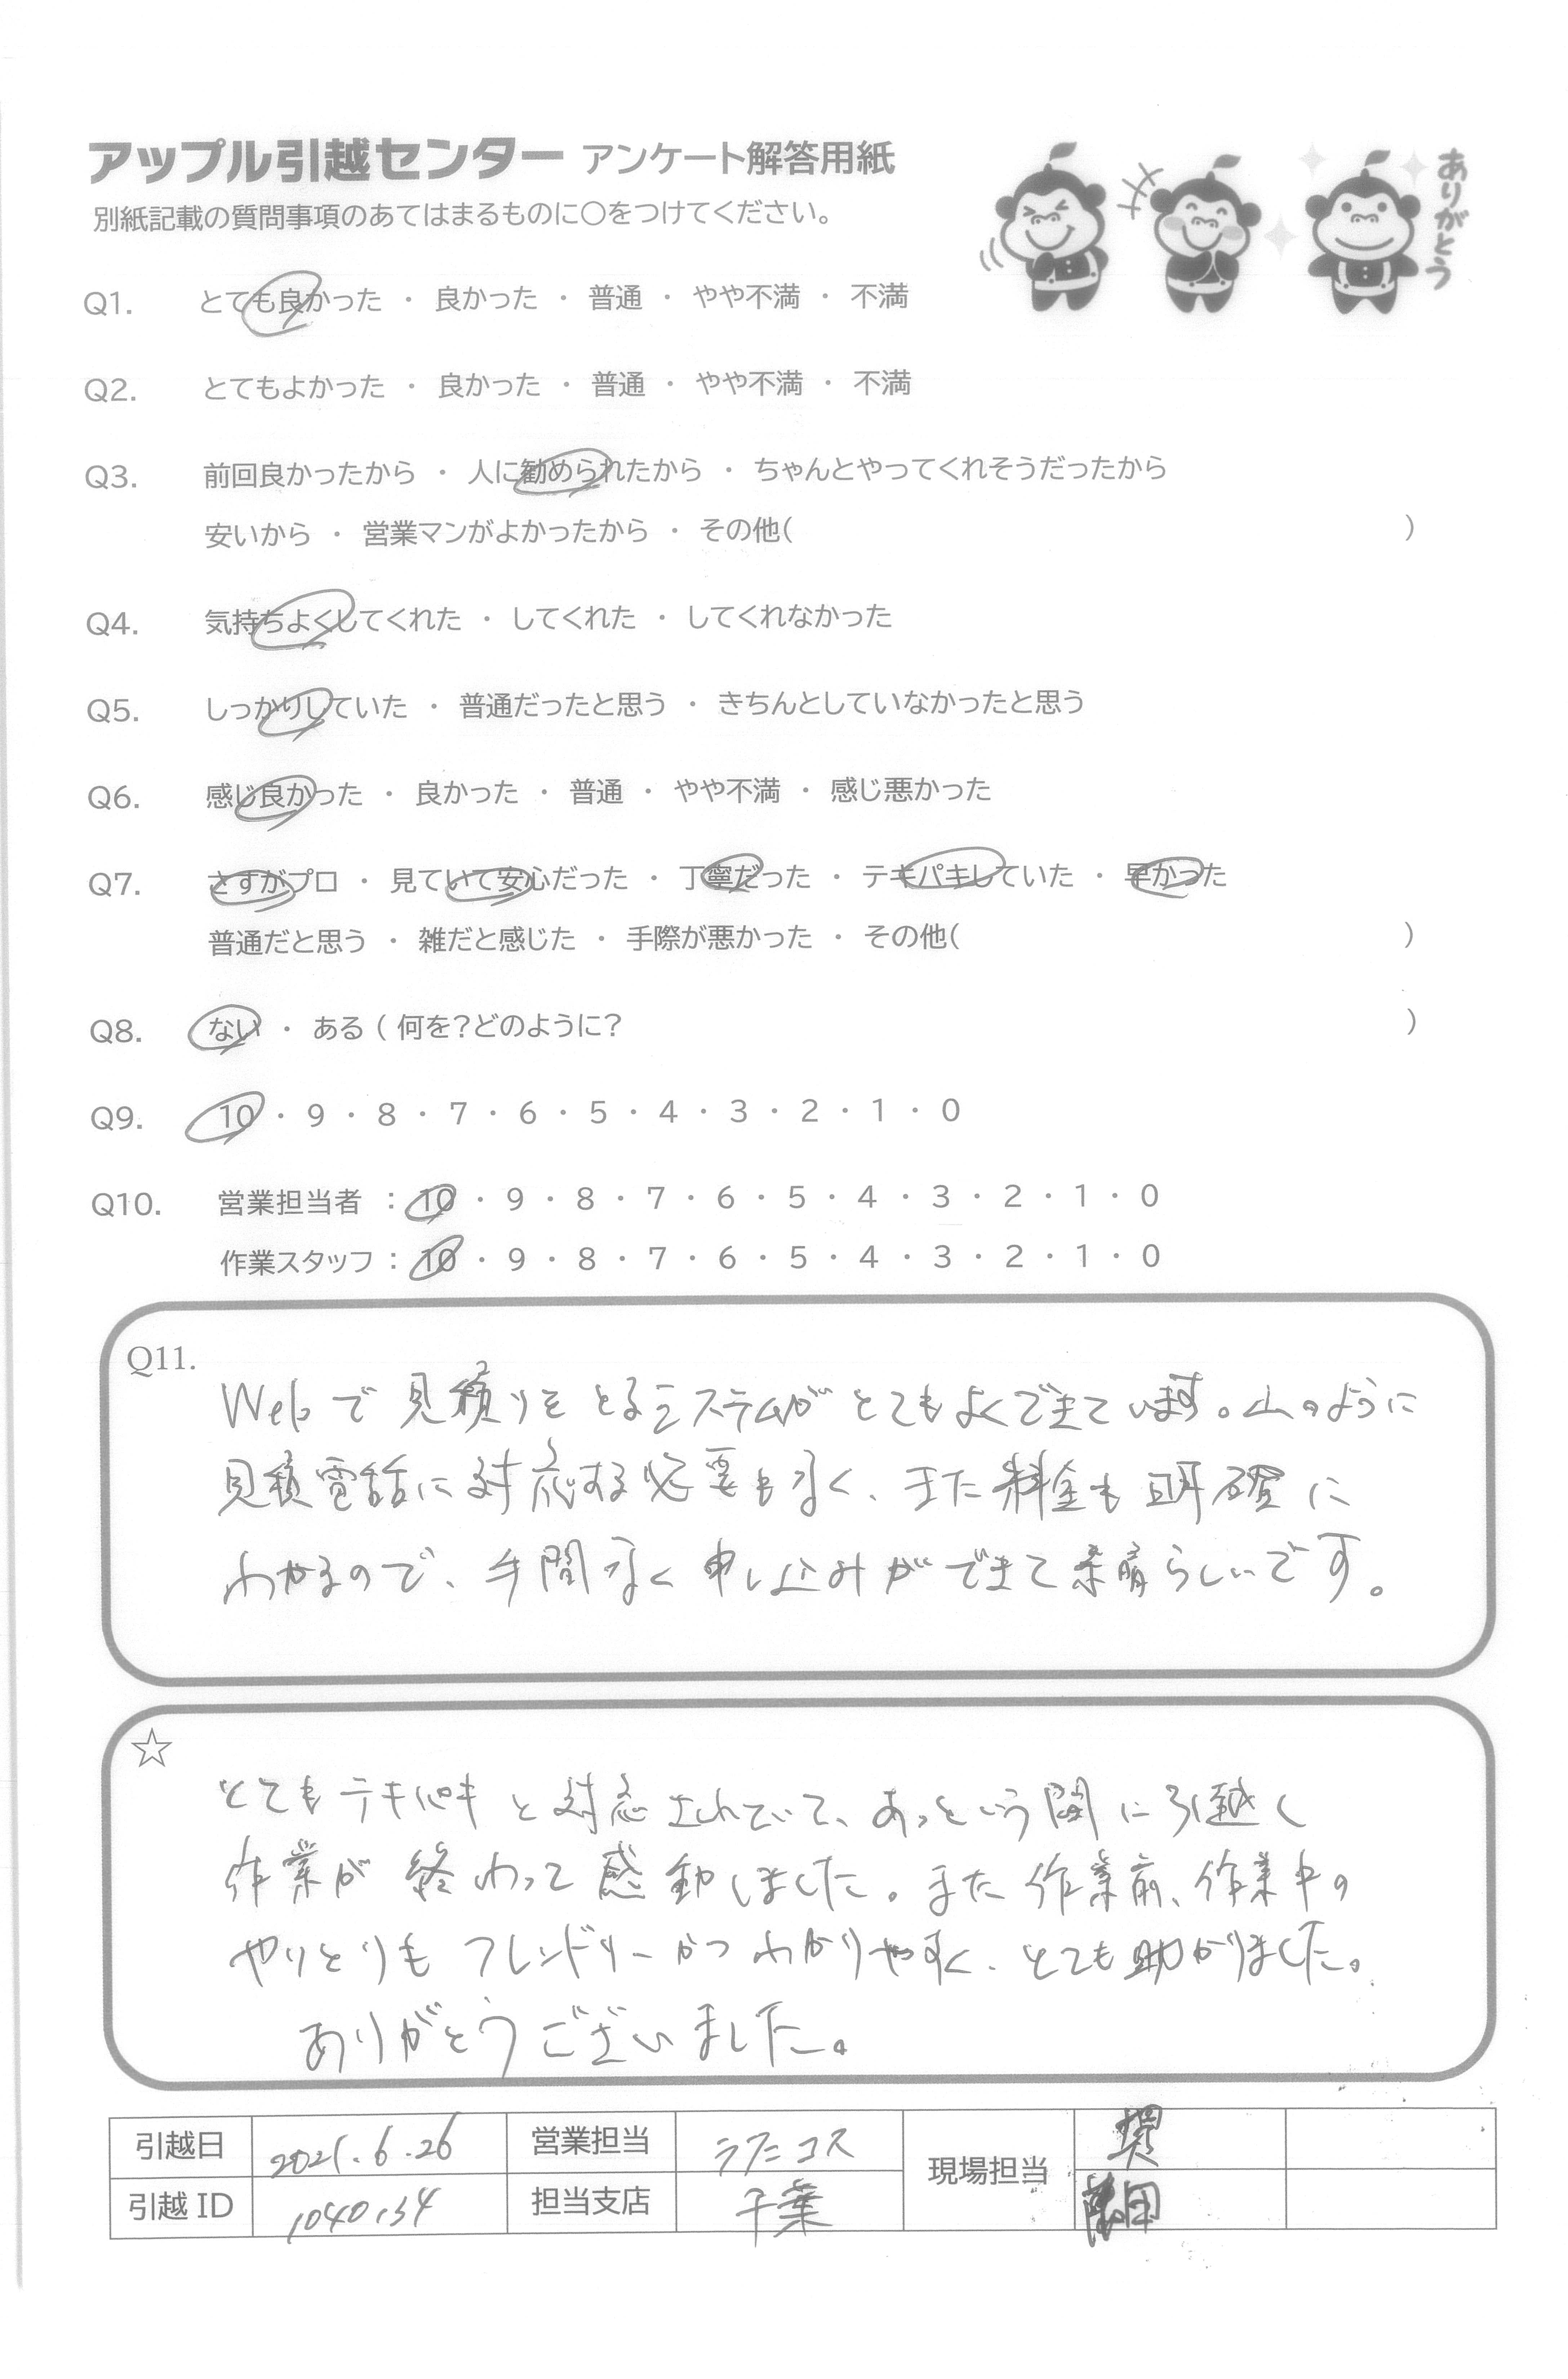 アップル引越センター アンケート解答用紙
別紙記載の質問事項のあてはまるものに○をつけてください。
ありがとう
Q1. とても良かった ・ 良かった ・ 普通 ・ やや不満 ・ 不満
Q2. とてもよかった ・ 良かった ・ 普通 ・ やや不満 ・ 不満
Q3. 前回良かったから ・ 人に勧められたから ・ ちゃんとやってくれそうだったから
安いから ・ 営業マンがよかったから ・ その他( )
Q4. 気持ちよくしてくれた ・ してくれた ・ してくれなかった
Q5. しっかりしていた ・ 普通だったと思う ・ きちんとしていなかったと思う
Q6. 感じ良かった ・ 良かった ・ 普通 ・ やや不満 ・ 感じ悪かった
Q7. さすがプロ ・ 見ていて安心だった ・ 丁寧だった ・ テキパキしていた ・ 早かった
普通だと思う ・ 雑だと感じた ・ 手際が悪かった ・ その他( )
Q8. ない ・ ある ( 何を?どのように? )
Q9. 10 ・ 9 ・ 8 ・ 7 ・ 6 ・ 5 ・ 4 ・ 3 ・ 2 ・ 1 ・ 0
Q10. 営業担当者 : 10 ・ 9 ・ 8 ・ 7 ・ 6 ・ 5 ・ 4 ・ 3 ・ 2 ・ 1 ・ 0
作業スタッフ : 10 ・ 9 ・ 8 ・ 7 ・ 6 ・ 5 ・ 4 ・ 3 ・ 2 ・ 1 ・ 0
Q11.
Webで見積りをとるシステムがとてもよくできています。山のように
見積電話に対応する必要もなく、また料金も明確に
わかるので、手間なく申し込みができて素晴らしいです。
☆
とてもテキパキと対応されていて、あっという間に引越し
作業が終わって感動しました。また作業前、作業中の
やりとりもフレンドリーかつわかりやすく、とても助かりました。
ありがとうございました。
引越日 2021.6.26 営業担当 ラクニコス 現場担当
引越ID 104034 担当支店 千葉